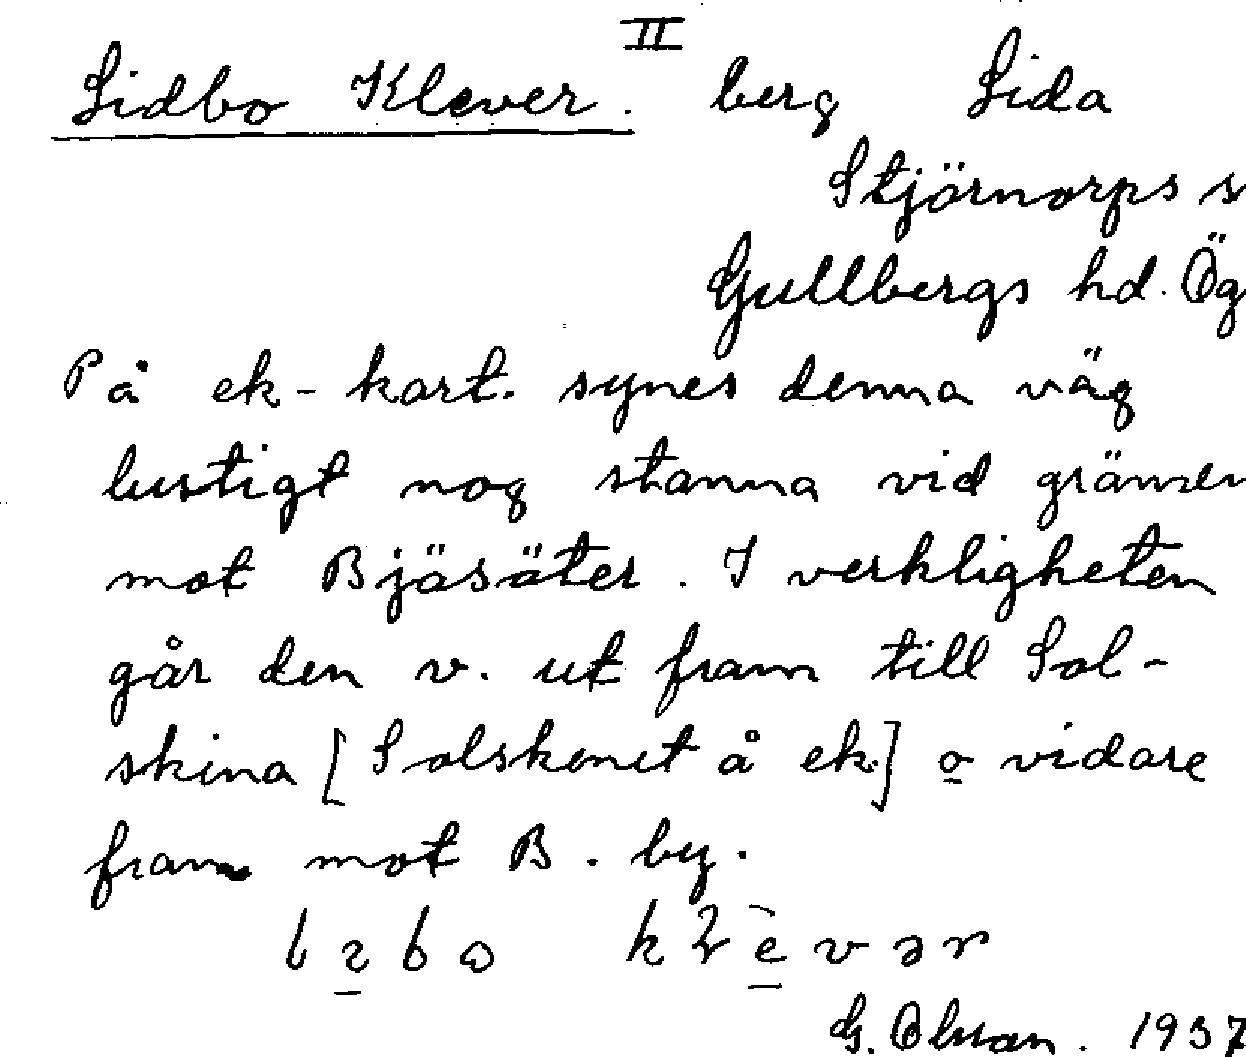 II
Lidbo Klever. berg Lida
Stjärnorps s
Gullbergs hd. Ög
På ek-kart. synes denna väg
lustigt nog stanna vid gränsen
mot Bjäsäter. I verkligheten
går den v. ut fram till Sol-
skina [Solskenet å ek] o vidare
fram mot B. by.
G. Olsson. 1937